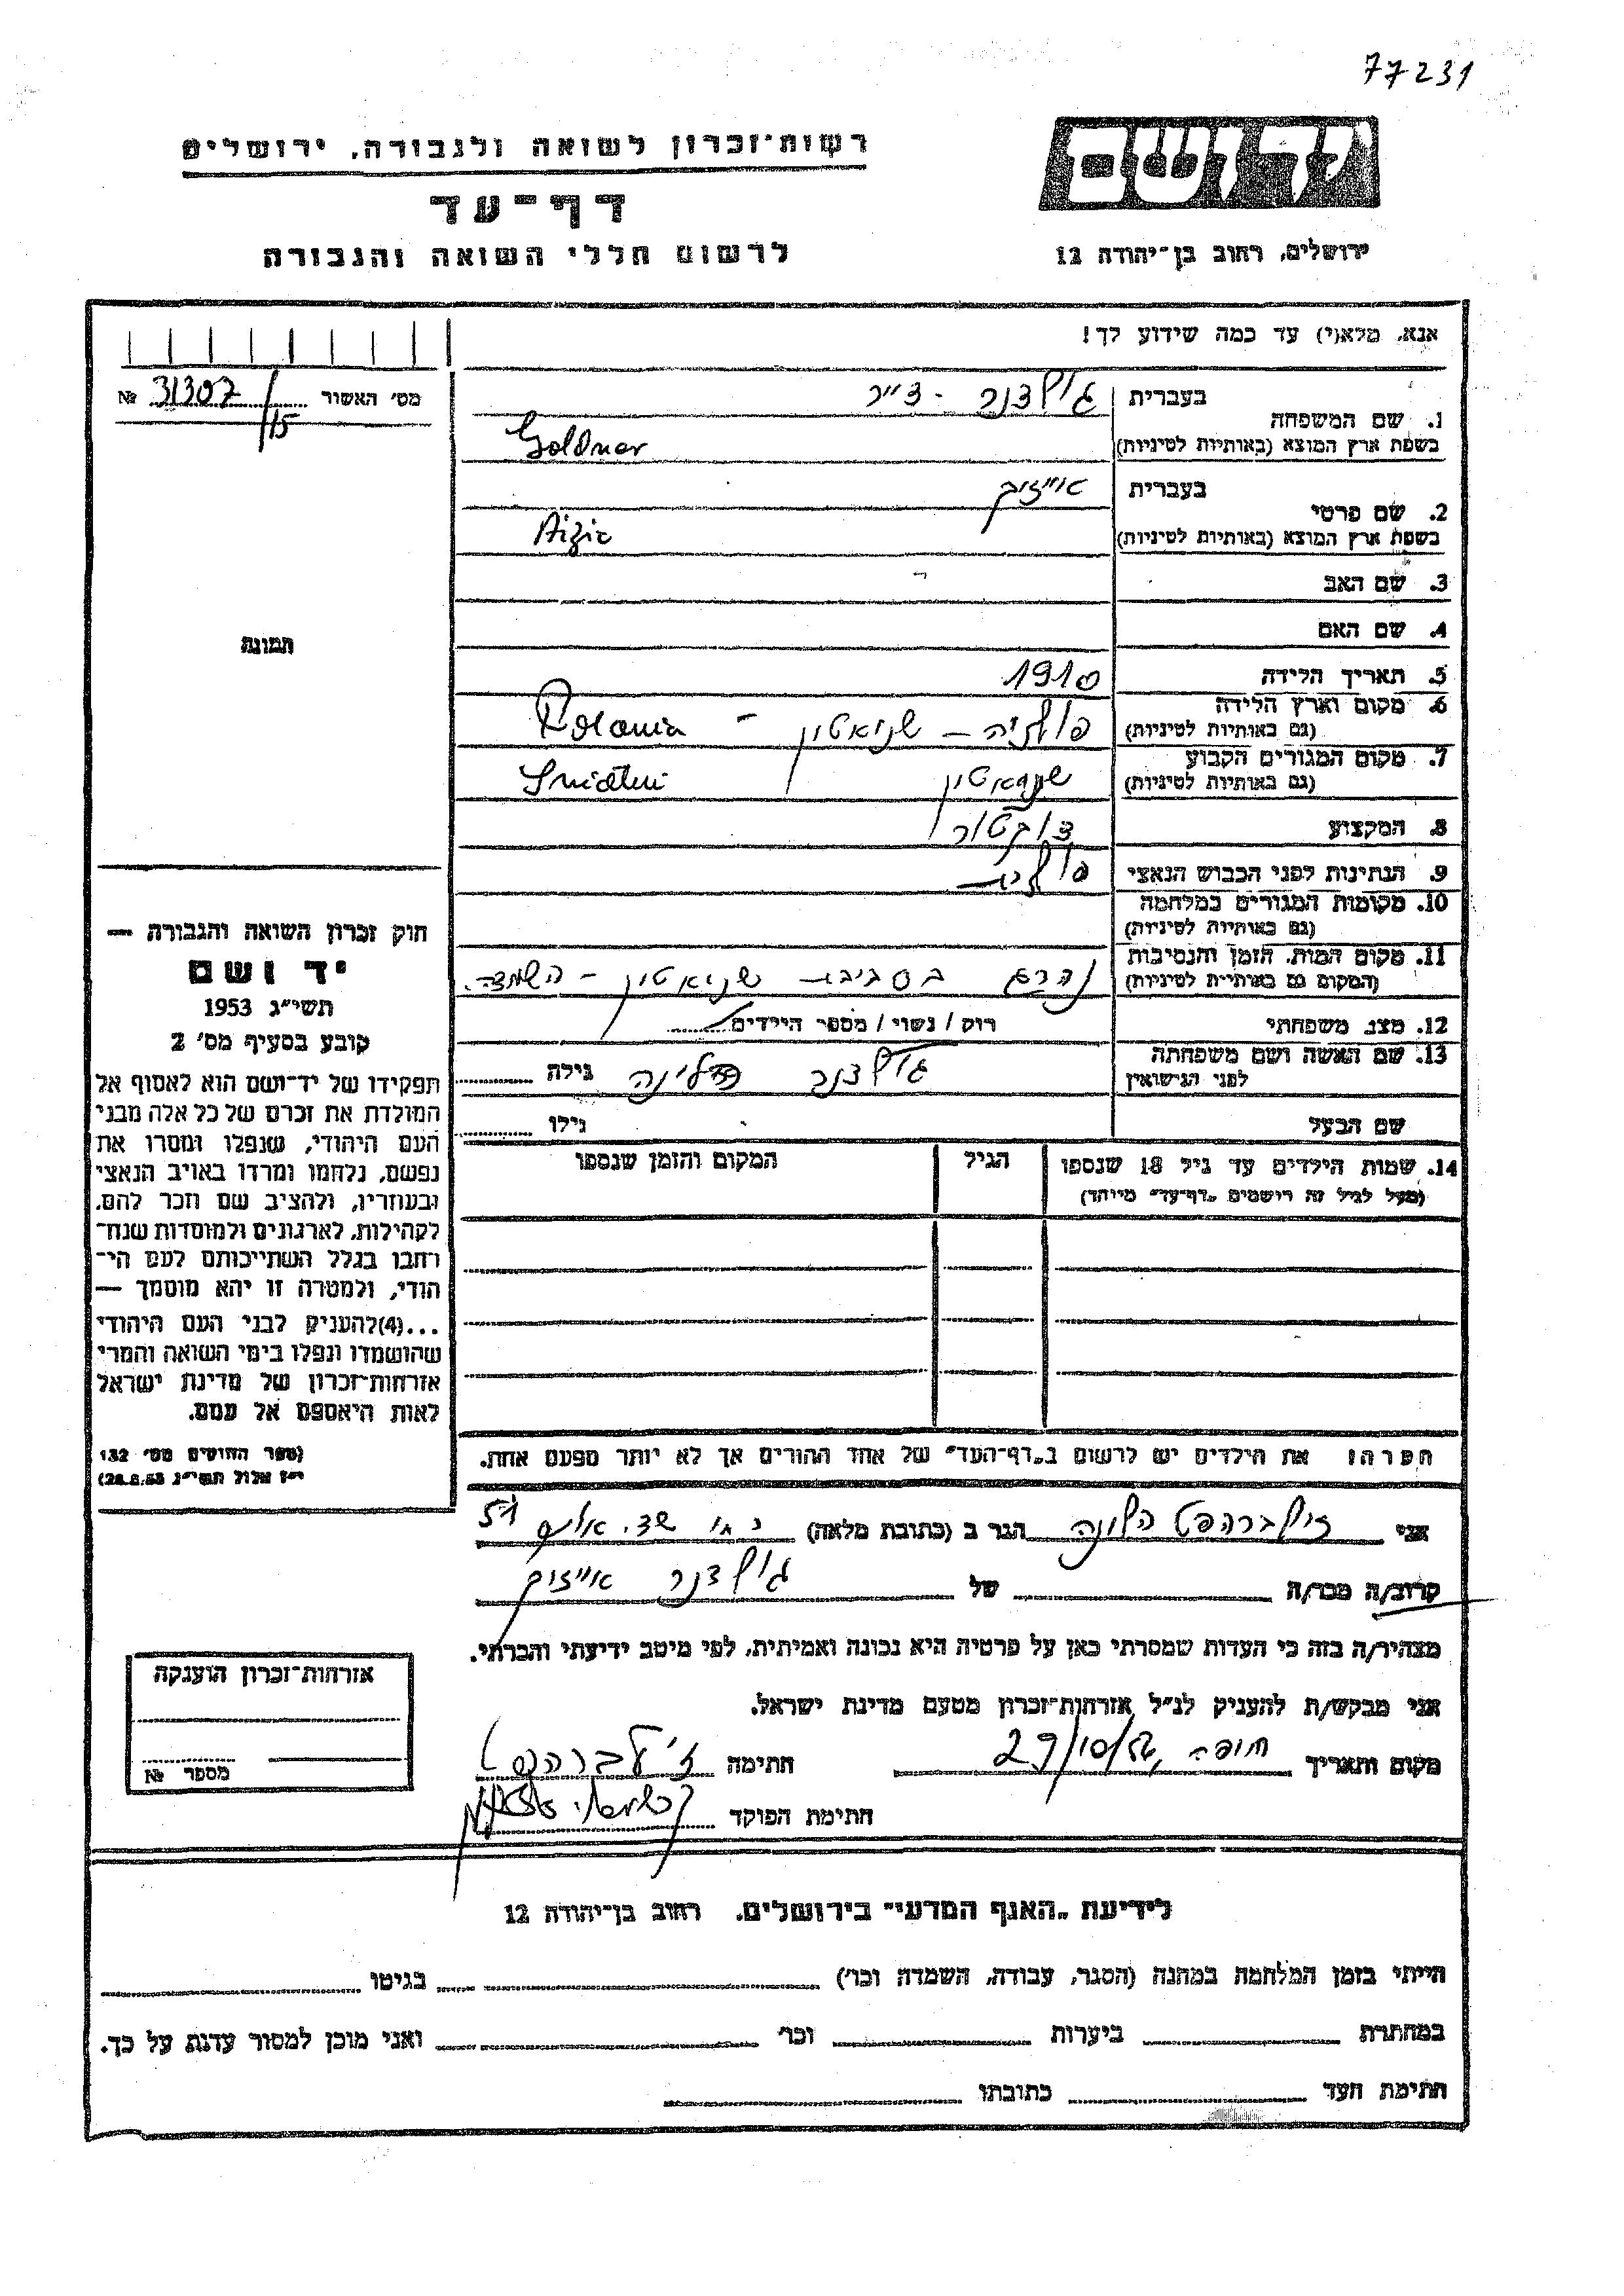 77231
רשות־זכרון לשואה ולגבורה, ירושלים
ידושם
דף־עד
לרשום חללי השואה והגבורה
ירושלים, רחוב בן־יהודה 12
אנא, מלא(י) עד כמה שידוע לך!
מס׳ האשור 31307/15 №
תמונה
1. שם המשפחה
בעברית גולדנר -
בשפת ארץ המוצא (באותיות לטיניות) Goldner
2. שם פרטי
בעברית אייזיק
בשפת ארץ המוצא (באותיות לטיניות) Aizic
3. שם האב
4. שם האם
5. תאריך הלידה 1910
6. מקום וארץ הלידה
(גם באותיות לטיניות) פולניה – שניאטין – Polania
7. מקום המגורים הקבוע
(גם באותיות לטיניות) שניאטין
8. המקצוע דוקטור
9. הנתינות לפני הכבוש הנאצי פולנית
10. מקומות המגורים במלחמה
(גם באותיות לטיניות)
11. מקום המות, הזמן והנסיבות
(המקום גם באותיות לטיניות) נהרג בסביבת שניאטין – השמדה.
12. מצב משפחתי רוק / נשוי / מספר הילדים
13. שם האשה ושם משפחתה
לפני הנישואין גולדנר גילה
שם הבעל גילו
14. שמות הילדים עד גיל 18 שנספו הגיל המקום והזמן שנספו
(מעל לגיל זה רישמים „דף־עד״ מיוחד)
חוק זכרון השואה והגבורה —
יד ושם
תשי״ג 1953
קובע בסעיף מס׳ 2
תפקידו של יד־ושם הוא לאסוף אל
המולדת את זכרם של כל אלה מבני
העם היהודי, שנפלו ומסרו את
נפשם, נלחמו ומרדו באויב הנאצי
ובעוזריו, ולהציב שם וזכר להם,
לקהילות, לארגונים ולמוסדות שנח־
רבו בגלל השתייכותם לעם הי־
הודי, ולמטרה זו יהא מוסמך —
...(4)להעניק לבני העם היהודי
שהושמדו ונפלו בימי השואה והמרי
אזרחות־זכרון של מדינת ישראל
לאות היאספם אל עמם.
(ספר החוקים מס׳ 132
י״ז אלול תשי״ג 28.8.53)
הערה: את הילדים יש לרשום ב„דף־העד״ של אחד ההורים אך לא יותר מפעם אחת.
אני זילברהפט הלונה הגר ב (כתובת מלאה)
קרוב/ה מכר/ה של גולדנר אייזיק
מצהיר/ה בזה כי העדות שמסרתי כאן על פרטיה היא נכונה ואמיתית, לפי מיטב ידיעתי והכרתי.
אני מבקש/ת להעניק לנ״ל אזרחות־זכרון מטעם מדינת ישראל.
מקום ותאריך חיפה חתימה
חתימת הפוקד
אזרחות־זכרון הוענקה
מספר №
לידיעת „האגף המדעי״ בירושלים, רחוב בן־יהודה 12
הייתי בזמן המלחמה במחנה (הסגר, עבודה, השמדה וכו׳) בגיטו
במחתרת ביערות וכו׳ ואני מוכן למסור עדות על כך.
חתימת העד כתובתו